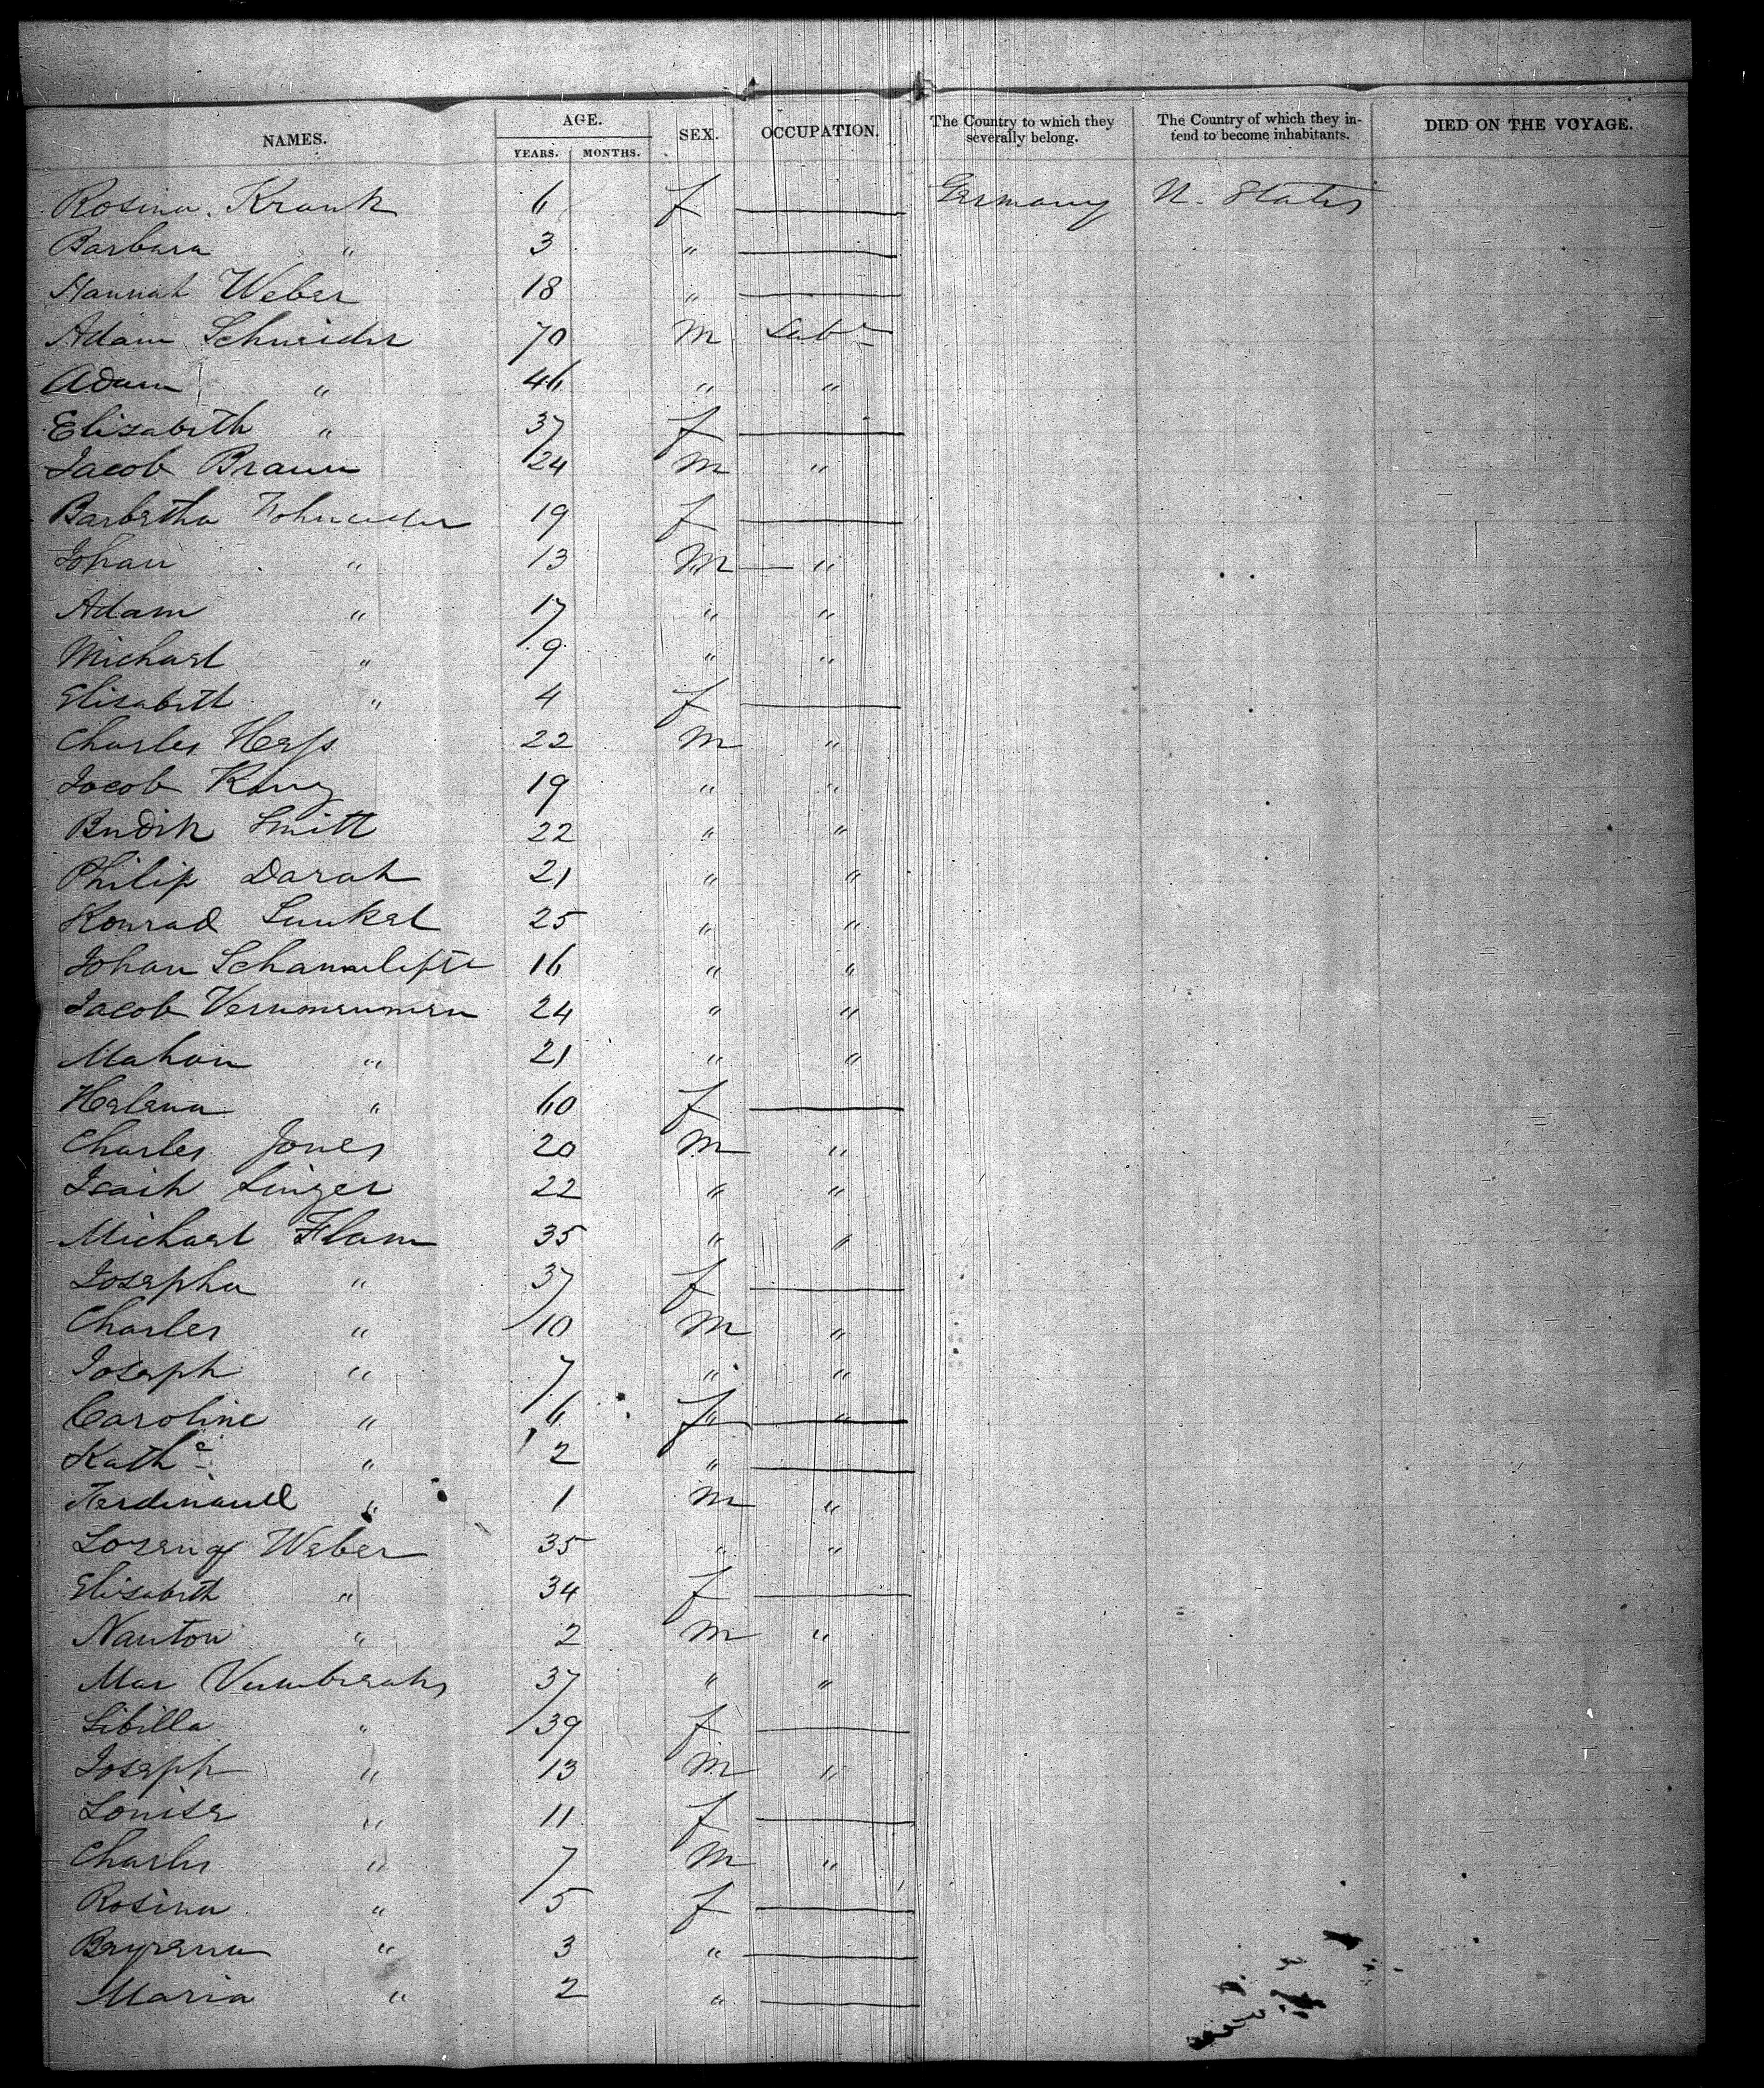 NAMES. AGE. SEX. OCCUPATION. The Country to which they severally belong. The Country of which they intend to become inhabitants. DIED ON THE VOYAGE.
YEARS. MONTHS.
Rosina Krank 6 f — Germany U. States
Barbara " 3 " —
Hannah Weber 18 " —
Adam Schneider 70 m Labr
Adam " 46 " "
Elizabeth " 37 f —
Jacob Braun 24 m "
Barbetha 19 f —
Johan " 13 m — "
Adam " 17 " "
Michael " 9 " "
Elisabeth " 4 f —
Charles Hess 22 m "
Jacob 19 " "
Smitt 22 " "
Philip Darah 21 " "
Konrad Sunkel 25 " "
Johan 16 " "
Jacob 24 " "
Mahon " 21 " "
Helena " 60 f —
Charles Jones 20 m "
Isaih Singer 22 " "
Michael Flam 35 " "
Josepha " 37 f —
Charles " 10 m "
Joseph " 7 " "
Caroline " 6 f —
Kathe " 2 " —
Ferdinand " 1 m "
Weber 35 " "
Elisabeth " 34 f —
Nanton " 2 m "
Mar 37 " "
Sibilla " 39 f —
Joseph " 13 m "
Louise " 11 f —
Charles " 7 m "
Rosina " 5 f —
" 3 " —
Maria " 2 " —